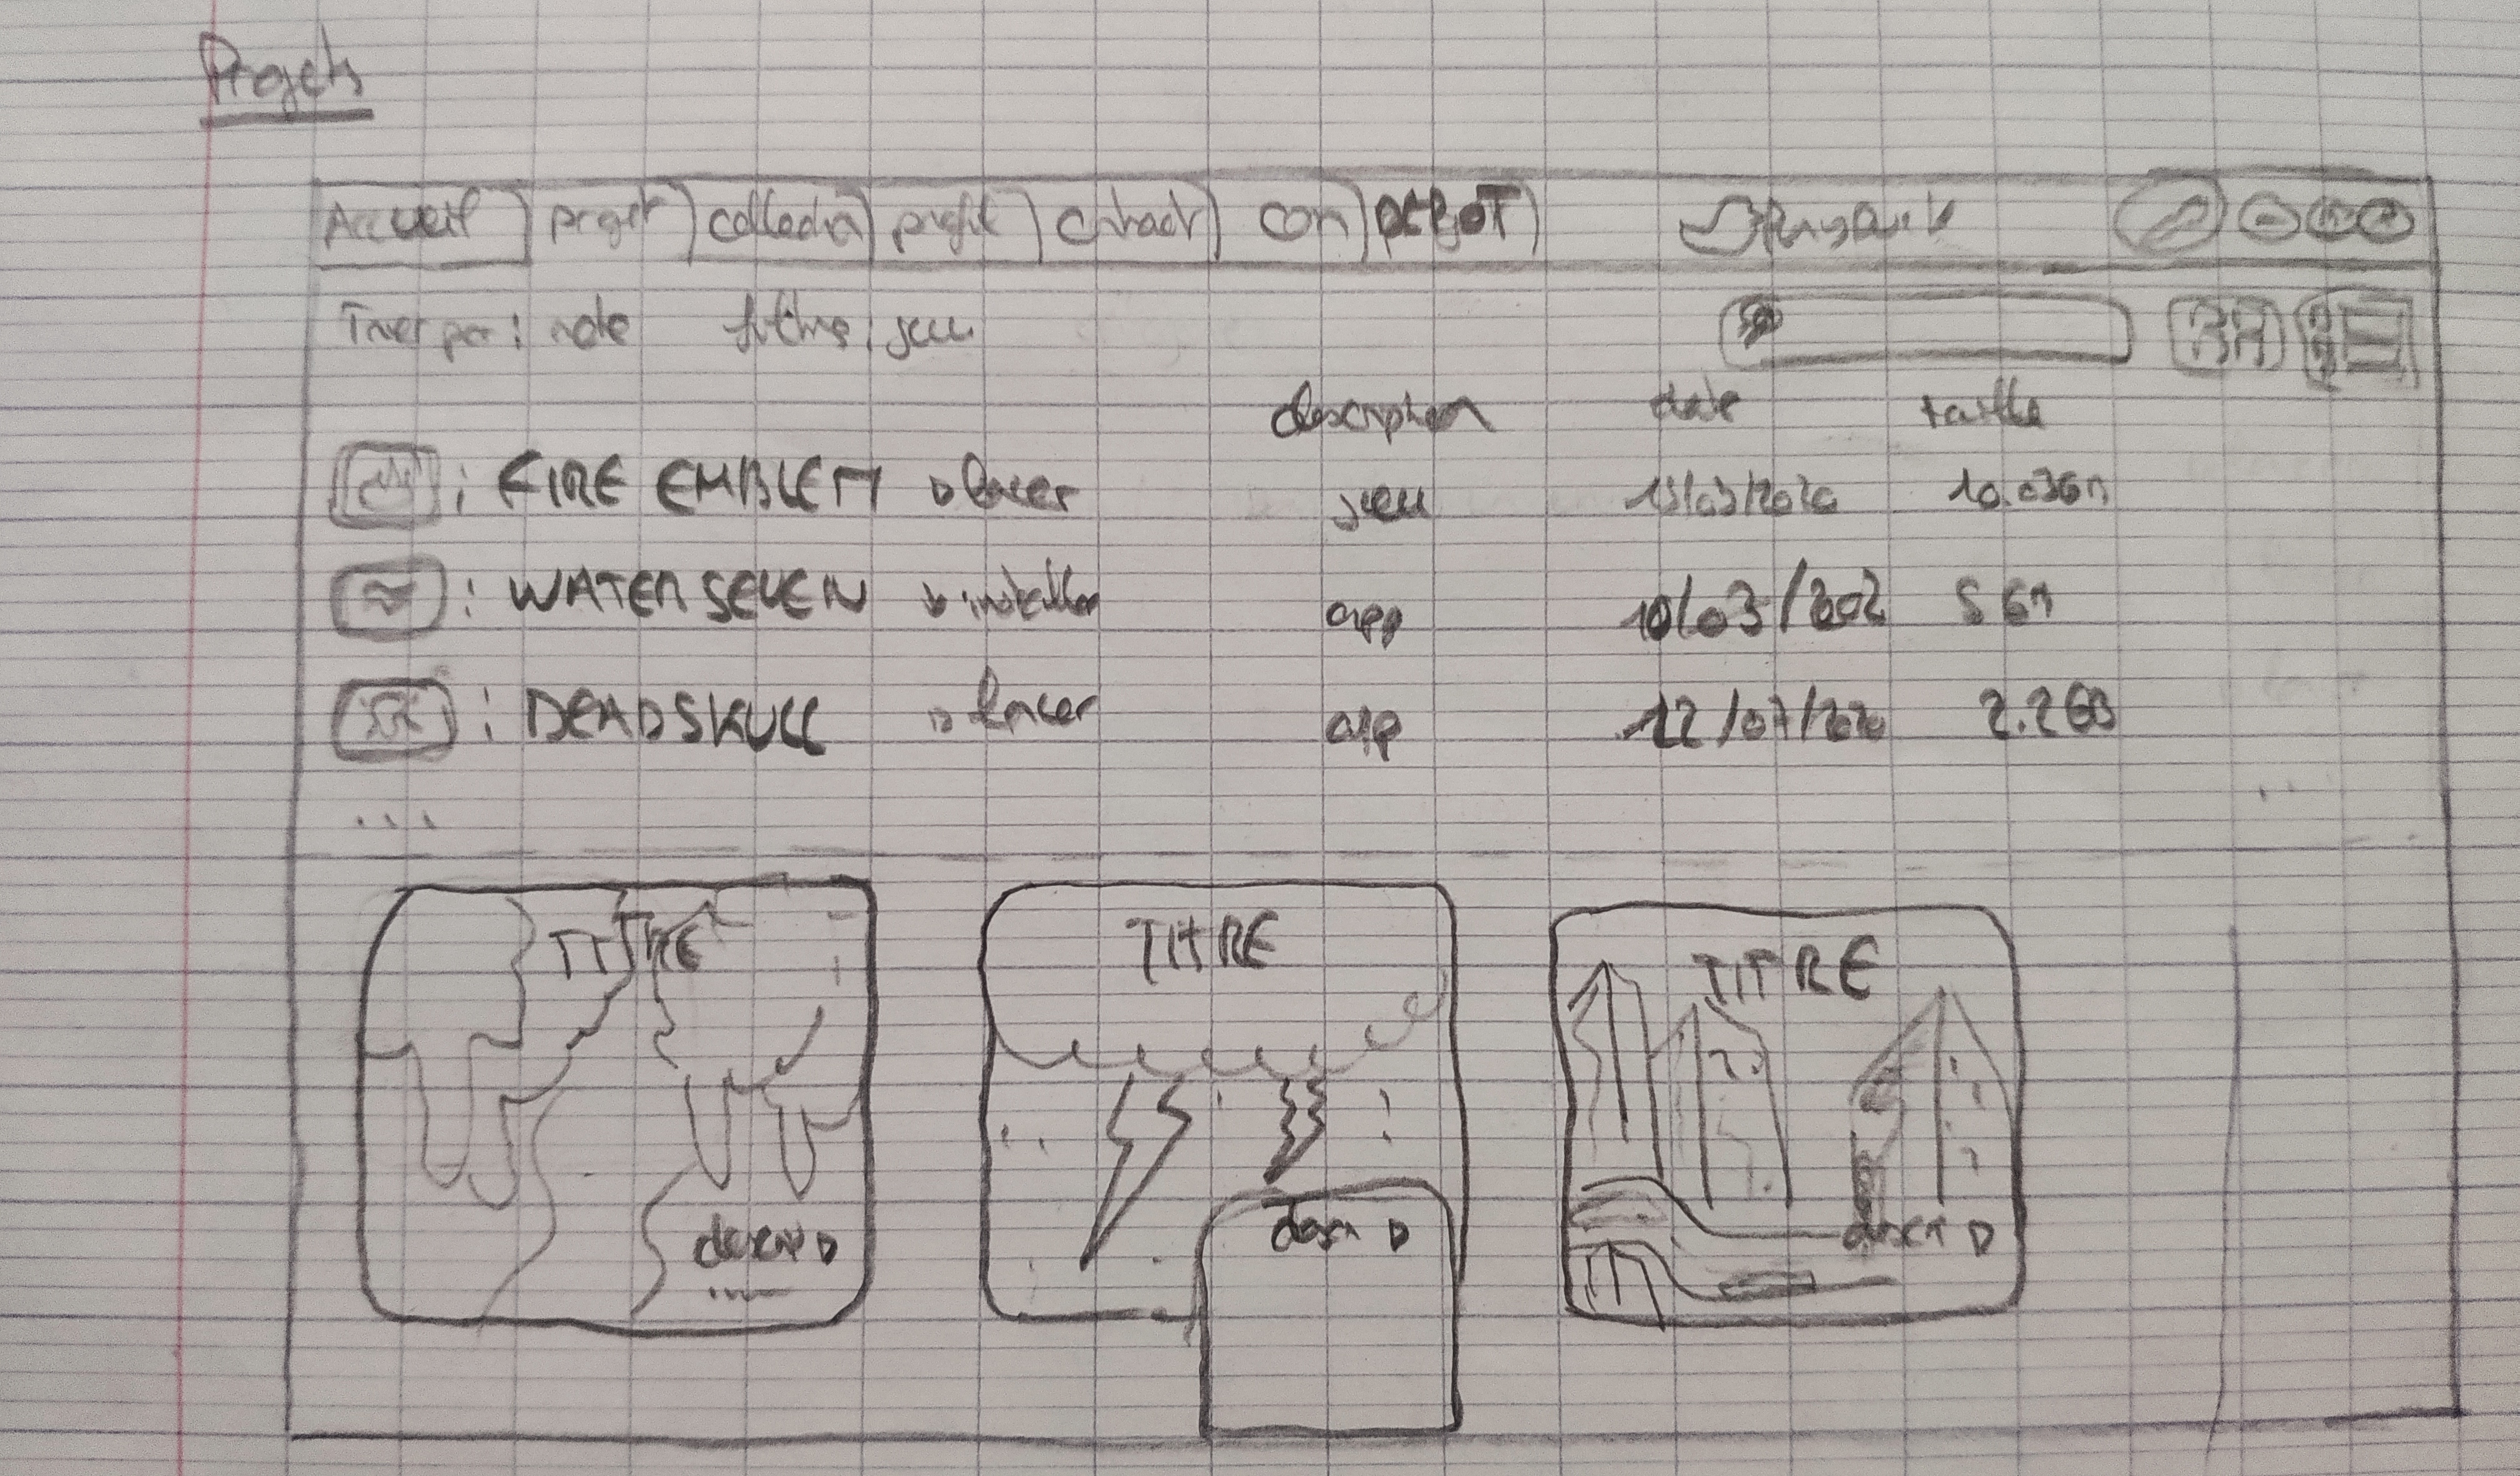 Projets
Accueil projet collection profil contact con
Trier par : note jeu
description date taille
: FIRE EMBLEM ▷ lancer jeu
: WATER SEVEN installer app 10/03/202
: DEADSKULL ▷ lancer app 12/07/2020 2.2GB
...
TITRE TITRE TITRE
descr ▷ descr ▷ descr ▷